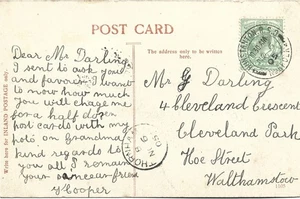 POST CARD
The address only to be written here.
Write here for INLAND POSTAGE only.
Dear Mr Darling
I sent to ask you
and favor is I want
to now how much
you will chage me
for a half dozen
post cards with my
hoto on Grandma
kind regards to
you all I remain
your sincear friend
H Cooper
Mr G Darling
4 Cleveland Crescent
Cleveland Park
Hoe Street
Walthamstow
THORP